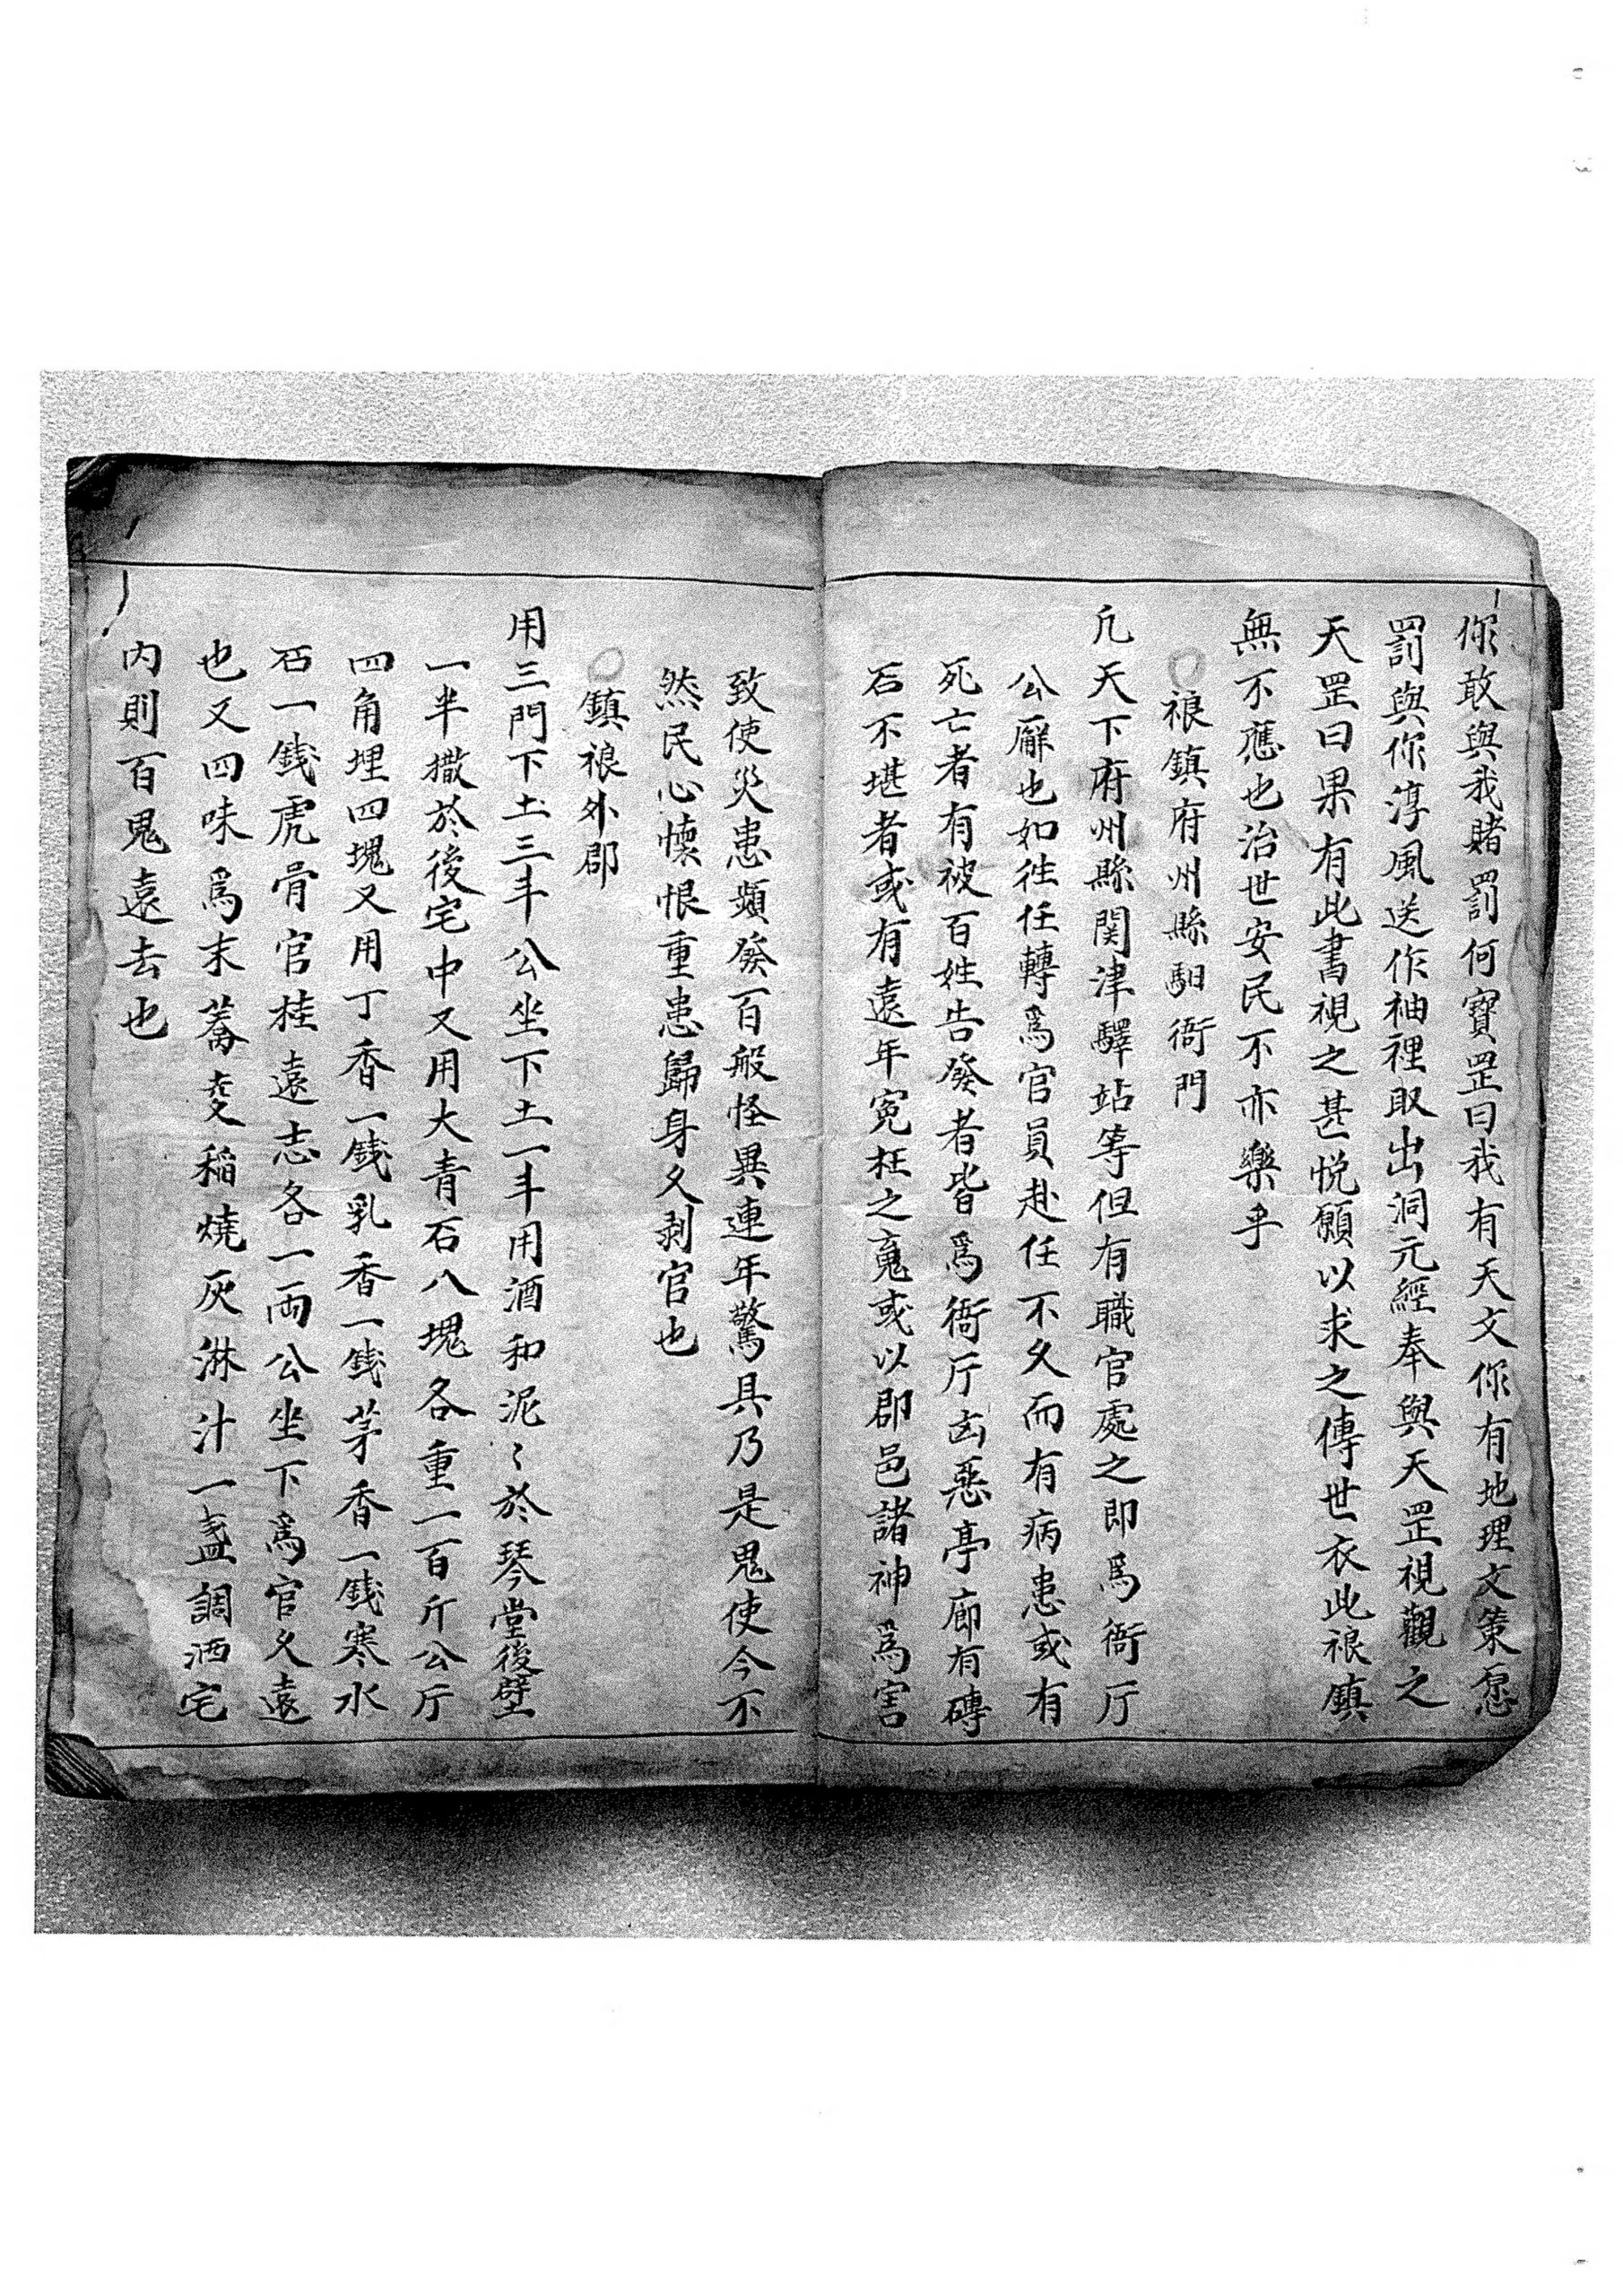 你敢與我賭罰何寶罡曰我有天文你有地理文策愿
罰與你淳風送作袖裡取出洞元經奉與天罡視觀之
天罡曰果有此書視之甚悅願以求之傳世衣此禳鎮
無不應也治世安民不亦樂乎
○禳鎮府州縣馹衙門
凢天下府州縣関津驛站等但有職官處之即爲衙厅
公廨也如徃任轉爲官員赴任不久而有病患或有
死亡者有被百姓告發者皆爲衙厅凶惡亭廊有磚
石不堪者或有遠年寃枉之䰟或以郡邑諸神爲害
致使災患頻發百般怪異連年驚具乃是鬼使今不
然民心懷恨重患歸身久剥官也
○鎮禳外郡
用三門下土三斗公坐下土一斗用酒和泥〻於琴堂後壁
一半撒於後宅中又用大青石八塊各重一百斤公厅
四角埋四塊又用丁香一錢乳香一錢茅香一錢寒水
石一錢虎骨官桂遠志各一両公坐下爲官久遠
也又四味爲末蕎麦稲燒灰淋汁一盞調洒宅
内則百鬼遠去也